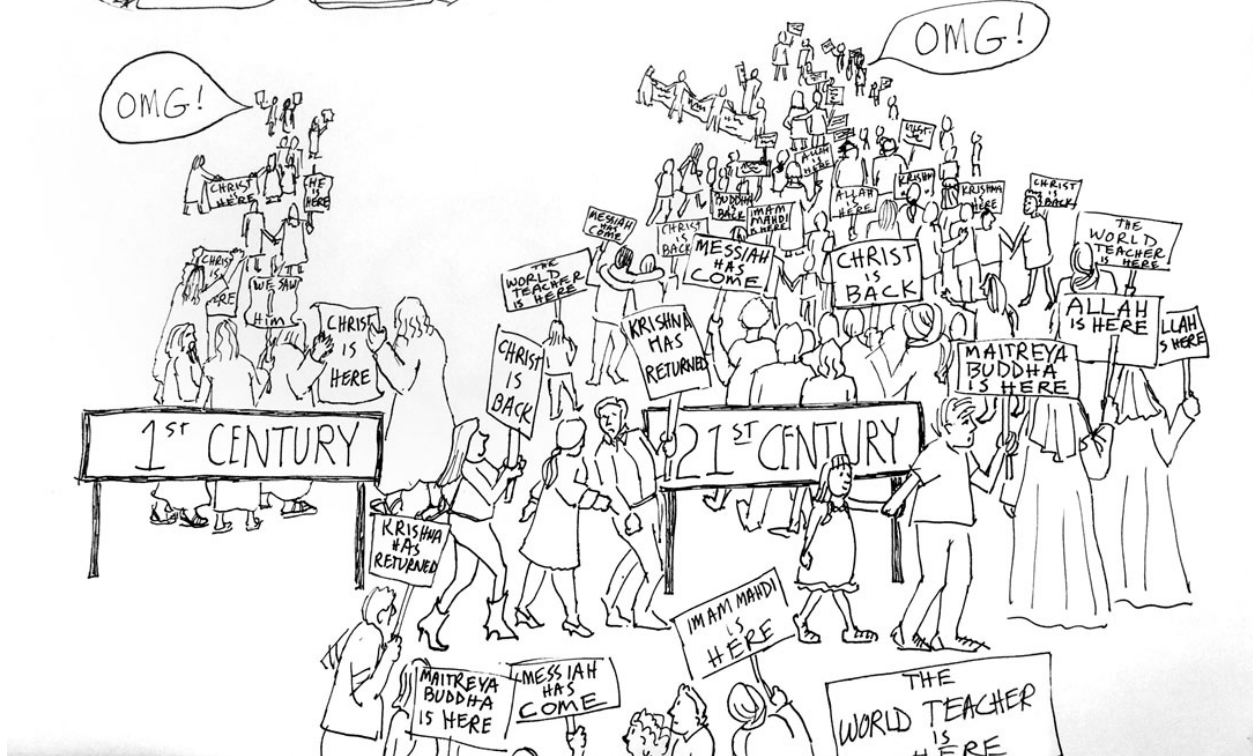 OMG!
OMG!
CHRIST
IS
HERE
HE
IS
HERE
CHRIST
IS
ERE
WE SAW
HIM
CHRIST
IS
HERE
1ST CENTURY
ALLAH
IS
HERE
BUDDHA
IS
BACK
IMAM
MAHDI
IS HERE
ALLAH
IS
HERE
KRISHNA
KRISHNA
HERE
CHRIST
IS
BACK
MESSIAH
HAS
COME
CHRIST
IS
BACK
MESSIAH
HAS
COME
CHRIST
IS
BACK
THE
WORLD
TEACHER
IS HERE
THE
WORLD
TEACHER
IS HERE
KRISHNA
HAS
RETURNED
ALLAH
IS HERE
LLAH
S HERE
CHRIST
IS
BACK
MAITREYA
BUDDHA
IS HERE
21ST CENTURY
KRISHNA
HAS
RETURNED
IMAM MAHDI
IS
HERE
MAITREYA
BUDDHA
IS HERE
MESSIAH
HAS
COME
THE
WORLD TEACHER
IS
HERE